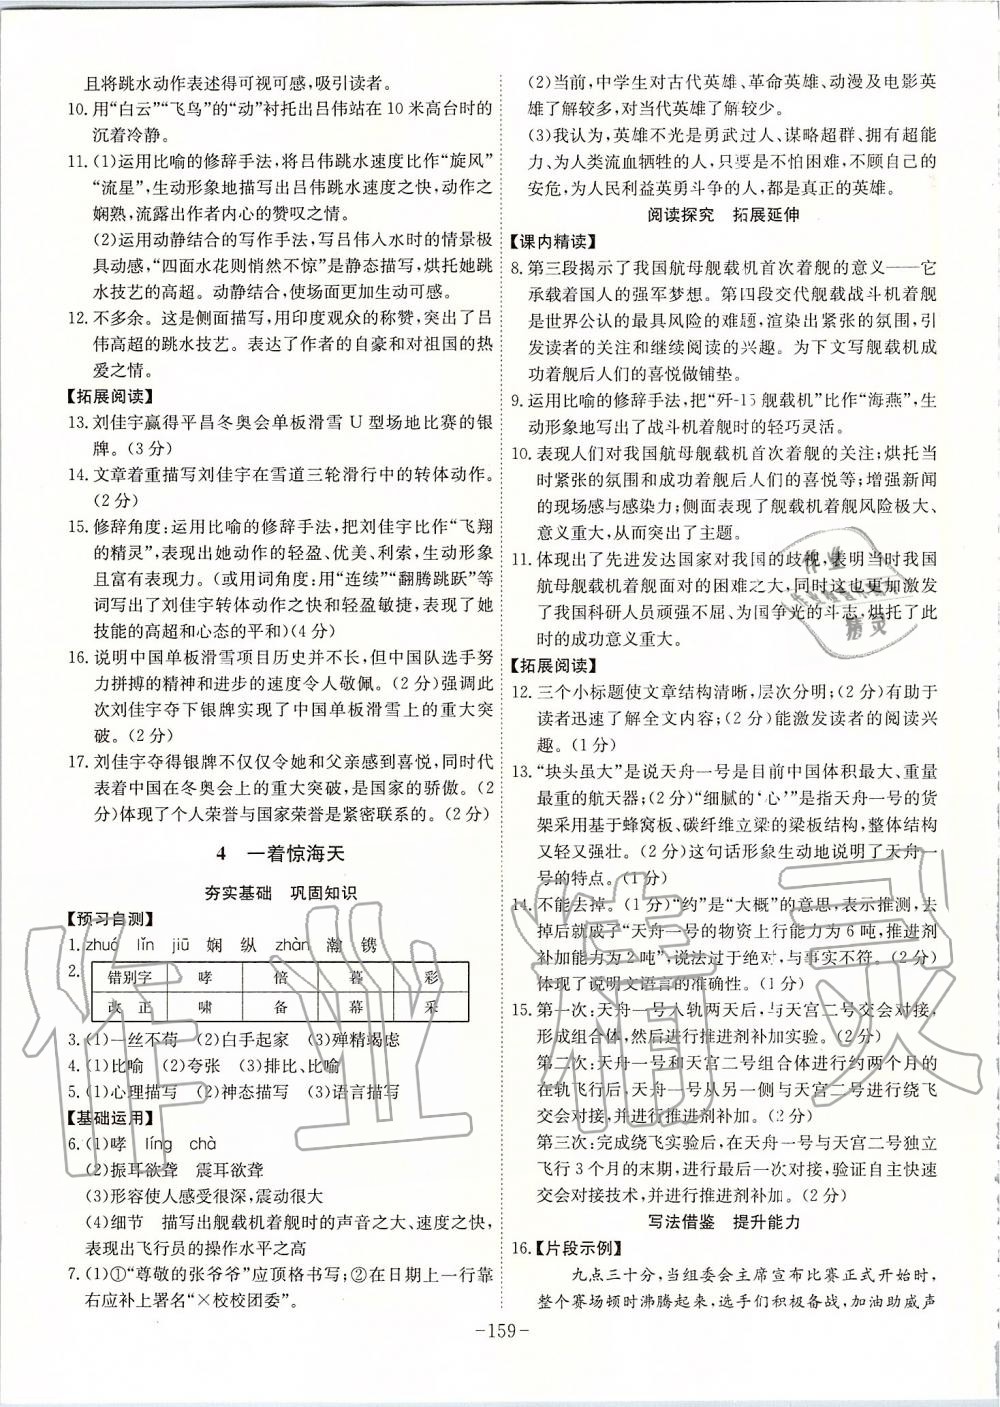 且将跳水动作表述得可视可感,吸引读者。
10. 用“白云”“飞鸟”的“动”衬托出吕伟站在 10 米高台时的
沉着冷静。
11. (1)运用比喻的修辞手法,将吕伟跳水速度比作“旋风”
“流星”,生动形象地描写出吕伟跳水速度之快,动作之
娴熟,流露出作者内心的赞叹之情。
(2)运用动静结合的写作手法,写吕伟入水时的情景极
具动感,“四面水花则悄然不惊”是静态描写,烘托她跳
水技艺的高超。动静结合,使场面更加生动可感。
12. 不多余。这是侧面描写,用印度观众的称赞,突出了吕
伟高超的跳水技艺。表达了作者的自豪和对祖国的热
爱之情。
【拓展阅读】
13. 刘佳宇赢得平昌冬奥会单板滑雪 U 型场地比赛的银
牌。(3 分)
14. 文章着重描写刘佳宇在雪道三轮滑行中的转体动作。
(2 分)
15. 修辞角度:运用比喻的修辞手法,把刘佳宇比作“飞翔
的精灵”,表现出她动作的轻盈、优美、利索,生动形象
且富有表现力。(或用词角度:用“连续”“翻腾跳跃”等
词写出了刘佳宇转体动作之快和轻盈敏捷,表现了她
技能的高超和心态的平和)(4 分)
16. 说明中国单板滑雪项目历史并不长,但中国队选手努
力拼搏的精神和进步的速度令人敬佩。(2 分)强调此
次刘佳宇夺下银牌实现了中国单板滑雪上的重大突
破。(2 分)
17. 刘佳宇夺得银牌不仅仅令她和父亲感到喜悦,同时代
表着中国在冬奥会上的重大突破,是国家的骄傲。(2
分)体现了个人荣誉与国家荣誉是紧密联系的。(2 分)
4 一着惊海天
夯实基础 巩固知识
【预习自测】
1. zhuó lǐn jiū 娴 纵 zhàn 瀚 镌
2. 错别字 哮 倍 暮 彩
改 正 啸 备 幕 采
3. (1)一丝不苟 (2)白手起家 (3)殚精竭虑
4. (1)比喻 (2)夸张 (3)排比、比喻
5. (1)心理描写 (2)神态描写 (3)语言描写
【基础运用】
6. (1)哮 líng chà
(2)振耳欲聋 震耳欲聋
(3)形容使人感受很深,震动很大
(4)细节 描写出舰载机着舰时的声音之大、速度之快,
表现出飞行员的操作水平之高
7. (1)①“尊敬的张爷爷”应顶格书写;②在日期上一行靠
右应补上署名“×校校团委”。
(2)当前,中学生对古代英雄、革命英雄、动漫及电影英
雄了解较多,对当代英雄了解较少。
(3)我认为,英雄不光是勇武过人、谋略超群、拥有超能
力、为人类流血牺牲的人,只要是不怕困难,不顾自己的
安危,为人民利益英勇斗争的人,都是真正的英雄。
阅读探究 拓展延伸
【课内精读】
8. 第三段揭示了我国航母舰载机首次着舰的意义——它
承载着国人的强军梦想。第四段交代舰载战斗机着舰
是世界公认的最具风险的难题,渲染出紧张的氛围,引
发读者的关注和继续阅读的兴趣。为下文写舰载机成
功着舰后人们的喜悦做铺垫。
9. 运用比喻的修辞手法,把“歼-15 舰载机”比作“海燕”,生
动形象地写出了战斗机着舰时的轻巧灵活。
10. 表现人们对我国航母舰载机首次着舰的关注;烘托当
时紧张的氛围和成功着舰后人们的喜悦等;增强新闻
的现场感与感染力;侧面表现了舰载机着舰风险极大、
意义重大,从而突出了主题。
11. 体现出了先进发达国家对我国的歧视,表明当时我国
航母舰载机着舰面对的困难之大,同时这也更加激发
了我国科研人员顽强不屈、为国争光的斗志,烘托了此
时的成功意义重大。
【拓展阅读】
12. 三个小标题使文章结构清晰,层次分明;(2 分)有助于
读者迅速了解全文内容;(2 分)能激发读者的阅读兴
趣。(1 分)
13. “块头虽大”是说天舟一号是目前中国体积最大、重量
最重的航天器;(2 分)“细腻的‘心’”是指天舟一号的货
架采用基于蜂窝板、碳纤维立梁的梁板结构,整体结构
又轻又强壮。(2 分)这句话形象生动地说明了天舟一
号的特点。(1 分)
14. 不能去掉。(1 分)“约”是“大概”的意思,表示推测,去
掉后就成了“天舟一号的物资上行能力为 6 吨,推进剂
补加能力为 2 吨”,说法过于绝对,与事实不符。(2 分)
体现了说明文语言的准确性。(1 分)
15. 第一次:天舟一号入轨两天后,与天宫二号交会对接,
形成组合体,然后进行推进剂补加实验。(2 分)
第二次:天舟一号和天宫二号组合体进行约两个月的
在轨飞行后,天舟一号从另一侧与天宫二号进行绕飞
交会对接,并进行推进剂补加。(2 分)
第三次:完成绕飞实验后,在天舟一号与天宫二号独立
飞行 3 个月的末期,进行最后一次对接,验证自主快速
交会对接技术,并进行推进剂补加。(2 分)
写法借鉴 提升能力
16. 【片段示例】
九点三十分,当组委会主席宣布比赛正式开始时,
整个赛场顿时沸腾起来,选手们积极备战,加油助威声
-159-
作业精灵